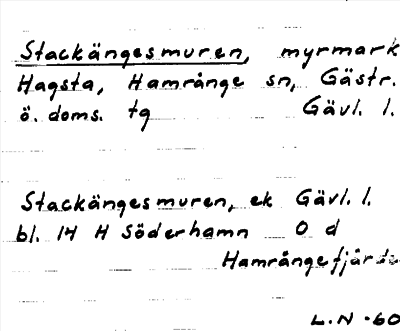 Stackängesmuren, myrmark
Hagsta, Hamrånge sn, Gästr.
ö. doms. tg Gävl. l.
Stackängesmuren, ek Gävl. l.
bl. 14 H Söderhamn O d
Hamrångefjärde
L.N -60